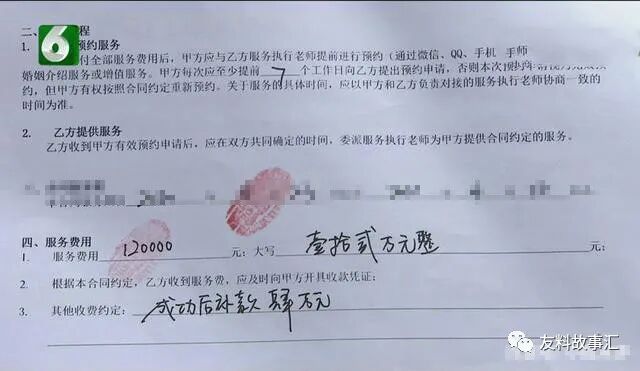 二、 程
6 预约服务
付全部服务费用后，甲方应与乙方服务执行老师提前进行预约（通过微信、QQ、手机
婚姻介绍服务或增值服务。甲方每次应至少提前 7 个工作日向乙方提出预约申请，否则本次
约，但甲方有权按照合同约定重新预约。关于服务的具体时间，应以甲方和乙方负责对接的服务执行老师协商一致的
时间为准。
2. 乙方提供服务
乙方收到甲方有效预约申请后，应在双方共同确定的时间，委派服务执行老师为甲方提供合同约定的服务。
四、服务费用
1. 服务费用 120000 元；大写 壹拾贰万元整 元；
2. 根据本合同约定，乙方收到服务费，应及时向甲方开具收款凭证；
3. 其他收费约定： 成功后补款 肆万元
友料故事汇